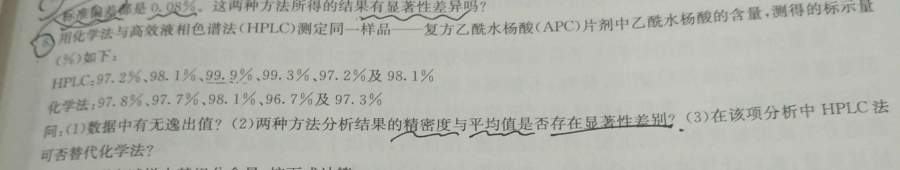 标准偏差都是0.08%。这两种方法所得的结果有显著性差异吗?
8. 用化学法与高效液相色谱法(HPLC)测定同一样品——复方乙酰水杨酸(APC)片剂中乙酰水杨酸的含量,测得的标示量
(%)如下:
HPLC:97.2%、98.1%、99.9%、99.3%、97.2%及98.1%
化学法:97.8%、97.7%、98.1%、96.7%及97.3%
问:(1)数据中有无逸出值?(2)两种方法分析结果的精密度与平均值是否存在显著性差别?(3)在该项分析中HPLC法
可否替代化学法?